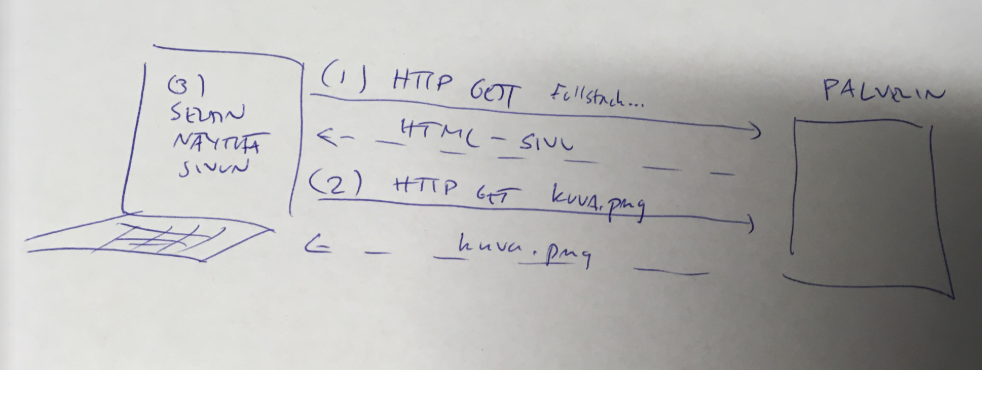 (3)
SELAIN
NÄYTTÄÄ
SIVUN
(1) HTTP GET Fullstack...
HTML - SIVU
(2) HTTP GET KUVA.png
kuva.png
PALVELIN